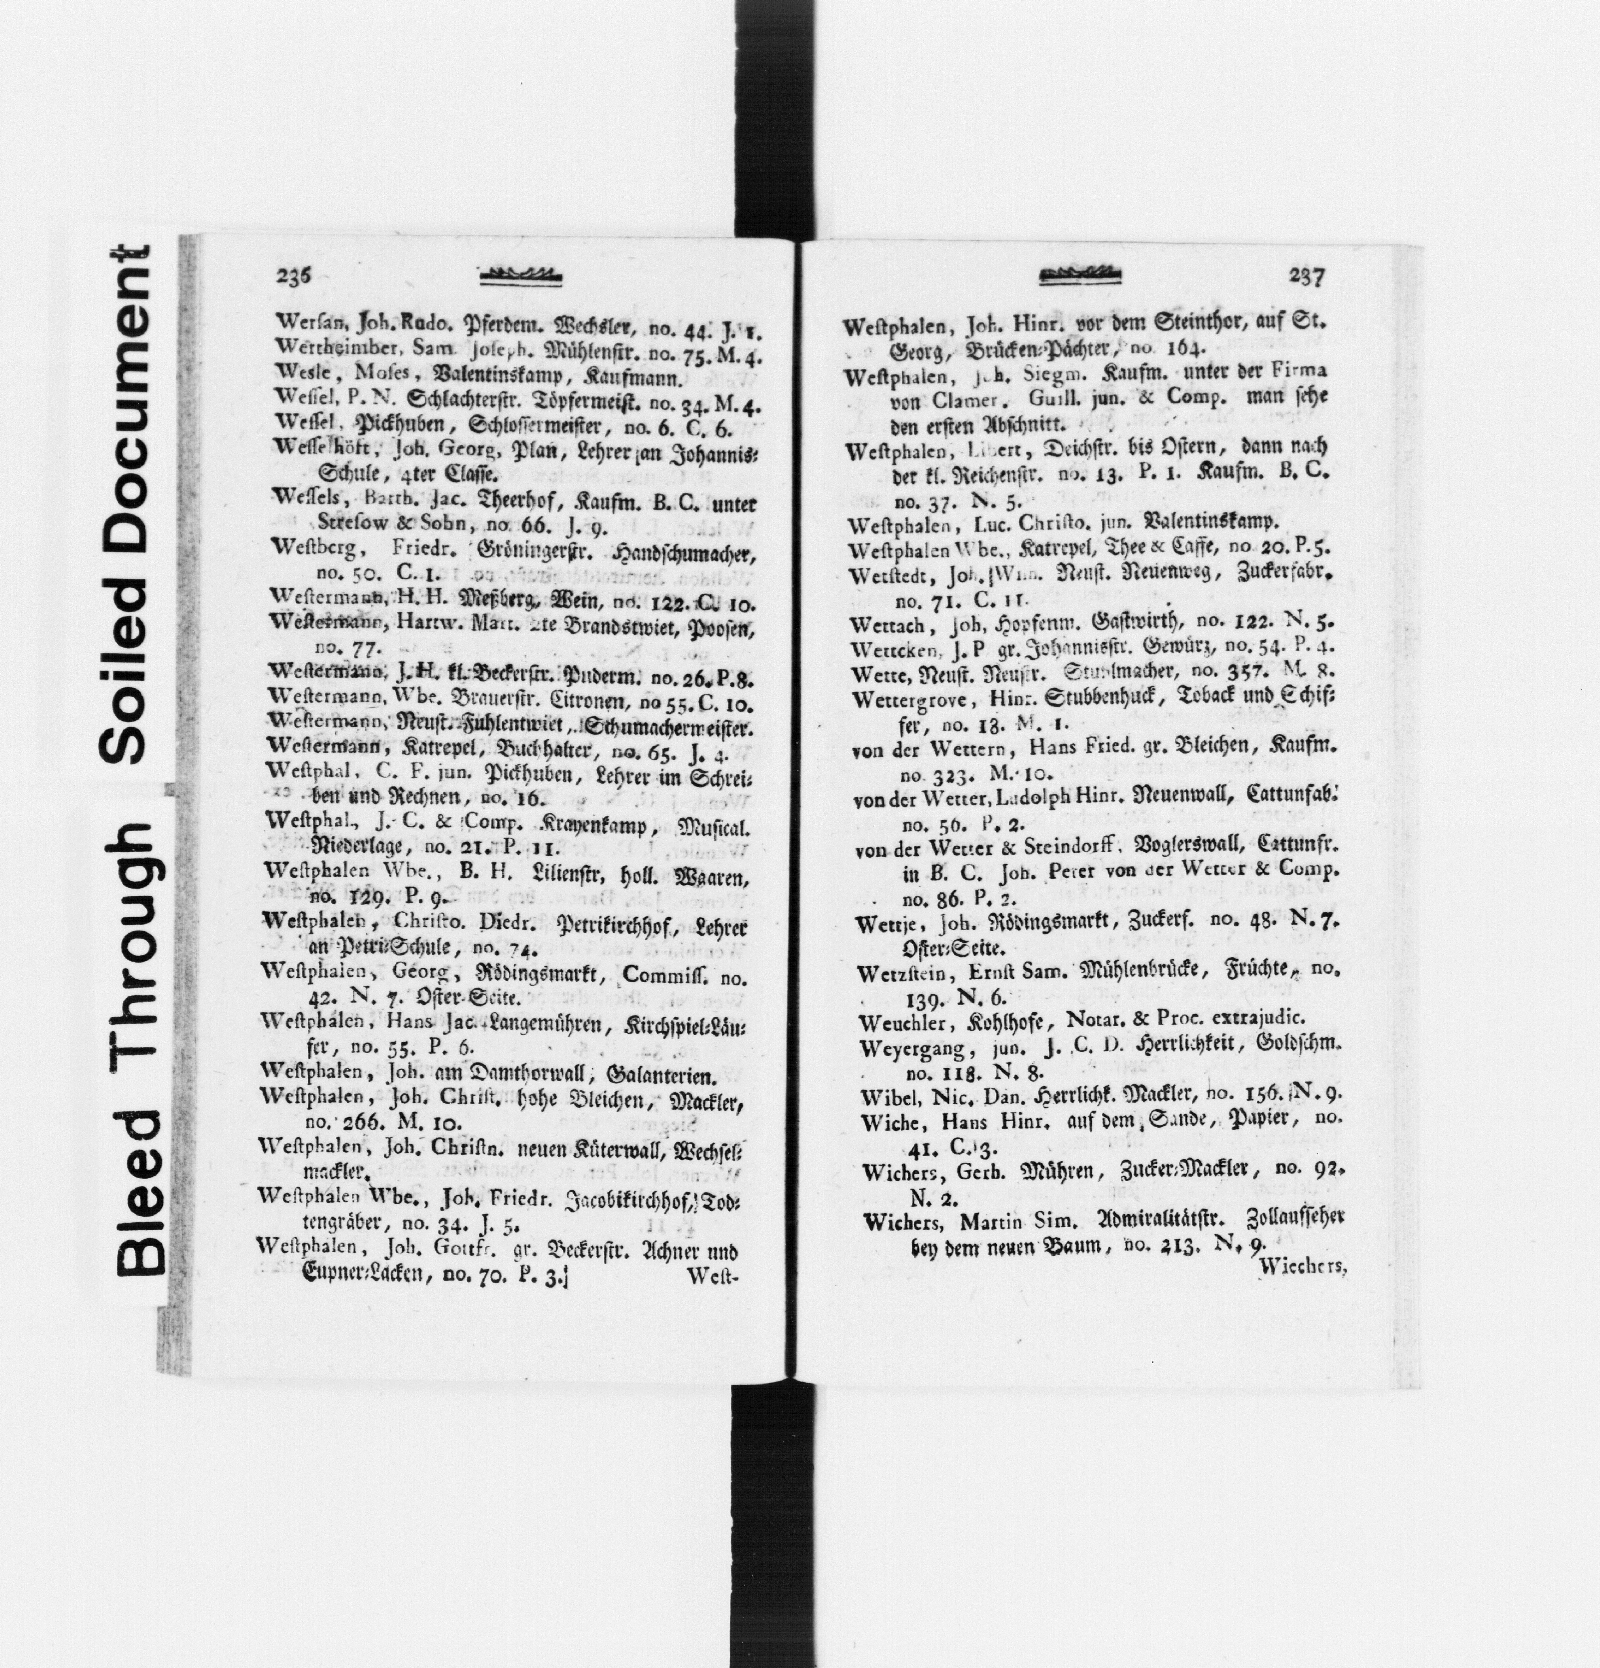 Soiled Document
Bleed Through
236
Wersan, Joh. Rudo. Pferdem. Wechsler, no. 44. J. 1.
Wertheimber, Sam. Joseph. Mühlenstr. no. 75. M. 4.
Wesle, Moses, Valentinskamp, Kaufmann.
Wessel, P. N. Schlachterstr. Töpfermeist. no. 34. M. 4.
Wessel, Pickhuben, Schlossermeister, no. 6. C. 6.
Wesselhöft, Joh. Georg, Plan, Lehrer an Johannis-
Schule, 4ter Classe.
Wessels, Barth. Jac. Theerhof, Kaufm. B. C. unter
Stresow & Sohn, no. 66. J. 9.
Westberg, Friedr. Gröningerstr. Handschumacher,
no. 50. C. 1.
Westermann, H. H. Meßberg, Wein, no. 122. C. 10.
Westermann, Hartw. Matt. 2te Brandstwiet, Poosen,
no. 77.
Westermann, J. H. kl. Beckerstr. Puderm. no. 26. P. 8.
Westermann, Wbe. Brauerstr. Citronen, no 55. C. 10.
Westermann, Neust. Fuhlentwiet, Schumachermeister.
Westermann, Katrepel, Buchhalter, no. 65. J. 4.
Westphal, C. F. jun. Pickhuben, Lehrer im Schrei-
ben und Rechnen, no. 16.
Westphal, J. C. & Comp. Krayenkamp, Musical.
Niederlage, no. 21. P. 11.
Westphalen Wbe., B. H. Lilienstr, holl. Waaren,
no. 129. P. 9.
Westphalen, Christo. Diedr. Petrikirchhof, Lehrer
an Petri-Schule, no. 74.
Westphalen, Georg, Rödingsmarkt, Commiss. no.
42. N. 7. Oster-Seite.
Westphalen, Hans Jac. Langemühren, Kirchspiel-Läu-
fer, no. 55. P. 6.
Westphalen, Joh. am Damthorwall, Galanterien.
Westphalen, Joh. Christ. hohe Bleichen, Mackler,
no. 266. M. 10.
Westphalen, Joh. Christn. neuen Küterwall, Wechsel-
mackler.
Westphalen Wbe., Joh. Friedr. Jacobikirchhof, Tod-
tengräber, no. 34. J. 5.
Westphalen, Joh. Gottfr. gr. Beckerstr. Achner und
Eupner-Lacken, no. 70. P. 3.
West-
237
Westphalen, Joh. Hinr. vor dem Steinthor, auf St.
Georg, Brücken-Pächter, no. 164.
Westphalen, Joh. Siegm. Kaufm. unter der Firma
von Clamer. Guill. jun. & Comp. man sehe
den ersten Abschnitt.
Westphalen, Libert, Deichstr. bis Ostern, dann nach
der kl. Reichenstr. no. 13. P. 1. Kaufm. B. C.
no. 37. N. 5.
Westphalen, Luc. Christo. jun. Valentinskamp.
Westphalen Wbe., Katrepel, Thee & Caffe, no 20. P. 5.
Wetstedt, Joh. Neust. Neuenweg, Zuckerfabr.
no. 71. C. 11.
Wettach, Joh, Hopfenm. Gastwirth, no. 122. N. 5.
Wettcken, J. P gr. Johannisstr. Gewürz, no. 54. P. 4.
Wette, Neust. Neustr. Stuhlmacher, no. 357. M. 8.
Wettergrove, Hinr. Stubbenhuck, Toback und Schif-
fer, no. 18. M. 1.
von der Wettern, Hans Fried. gr. Bleichen, Kaufm.
no 323. M. 10.
von der Wetter, Ludolph Hinr. Neuenwall, Cattunfab.
no. 56. P. 2.
von der Wetter & Steindorff, Voglerswall, Cattunfr.
in B. C. Joh. Peter von der Wetter & Comp.
no. 86. P. 2.
Wettje, Joh. Rödingsmarkt, Zuckerf. no. 48. N. 7.
Oster-Seite.
Wetzstein, Ernst Sam. Mühlenbrücke, Früchte, no.
139. N. 6.
Weuchler, Kohlhofe, Notar. & Proc. extrajudic.
Weyergang, jun. J. C. D. Herrlichkeit, Goldschm.
no. 118. N. 8.
Wibel, Nic. Dan. Herrlichk. Mackler, no. 156. N. 9.
Wiche, Hans Hinr. auf dem Sande, Papier, no.
41. C. 3.
Wichers, Gerh. Mühren, Zucker-Mackler, no. 92.
N. 2.
Wichers, Martin Sim. Admiralitätstr. Zollaufseher
bey dem neuen Baum, no. 213. N. 9.
Wiechers,